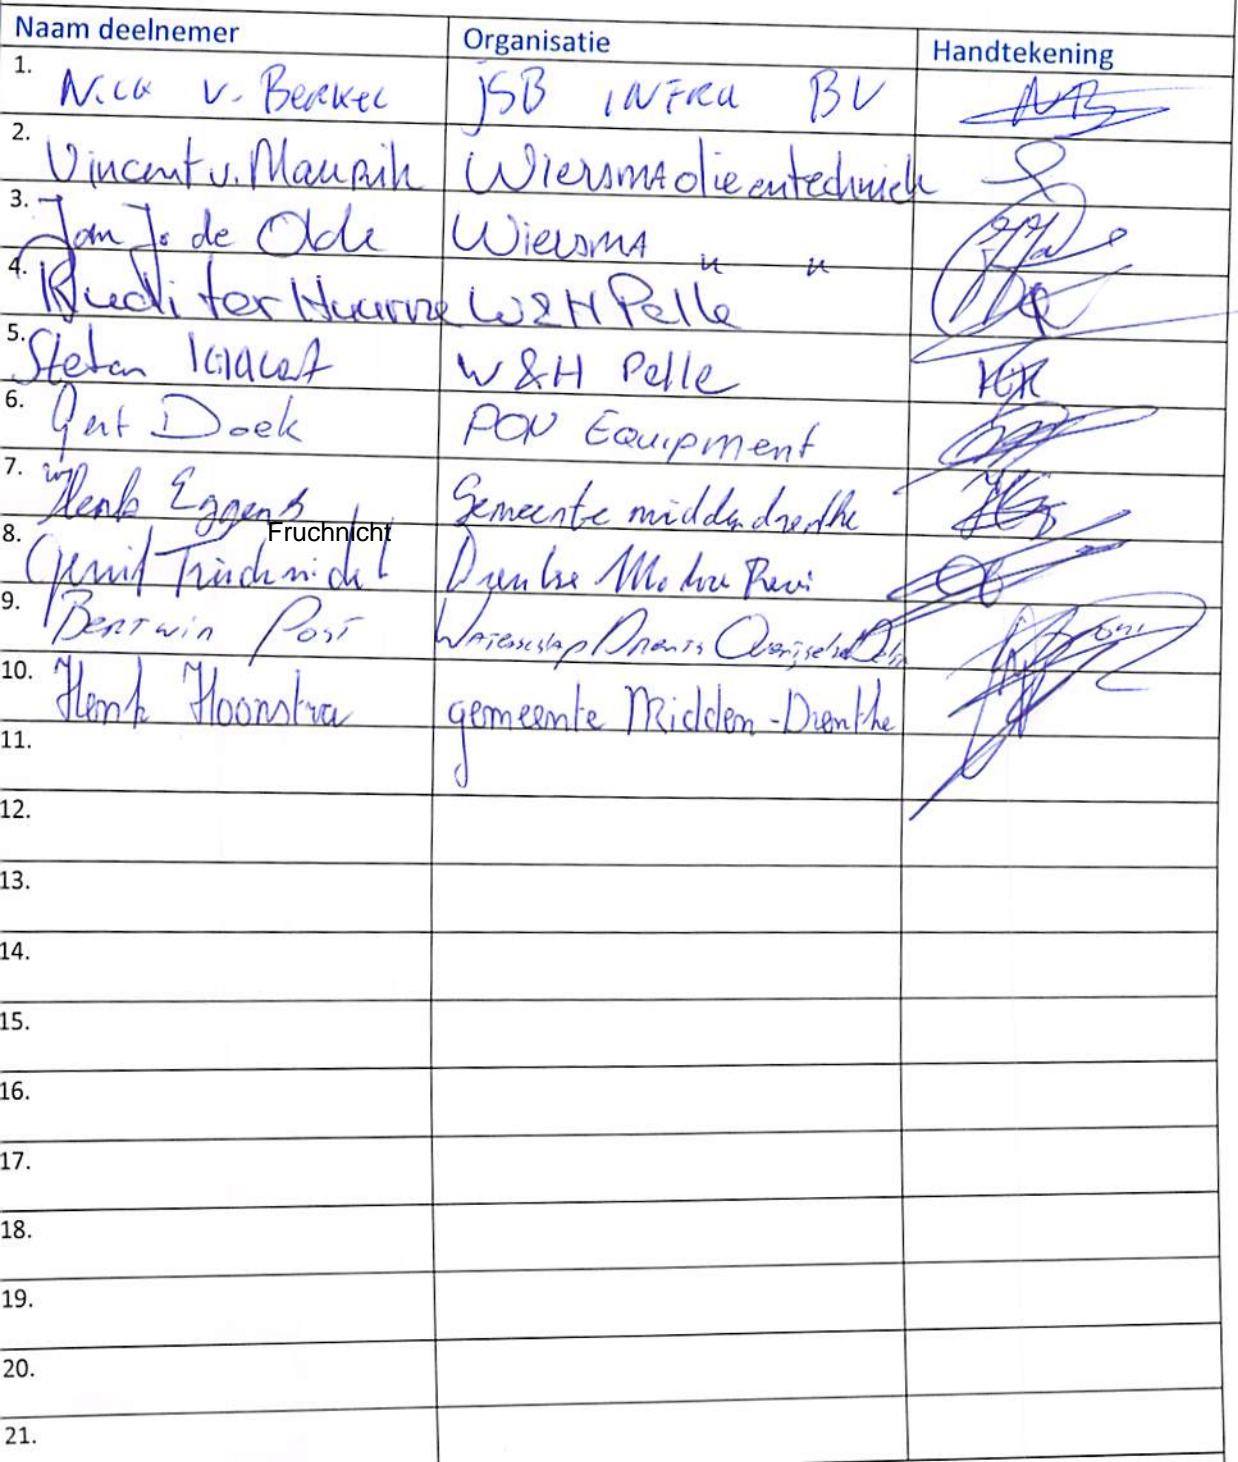 Naam deelnemer Organisatie Handtekening
1. Nick v. Berkel JSB INFRA BV NB
2. Vincent v. Maurik Wiersma dieseltechniek
3. Jan J. de Olde Wiersma " "
4. Rudi ter Huurne W&H Pelle
5. Stefan W&H Pelle
6. Gert Doek PON Equipment
7. Henk Eggens Gemeente middendrenthe
Fruchnicht
8. Gerrit Drentse
9. Bertwin Post Waterschap Drents Overijsselse Delta
10. Henk Hoonstra gemeente Midden-Drenthe
11.
12.
13.
14.
15.
16.
17.
18.
19.
20.
21.